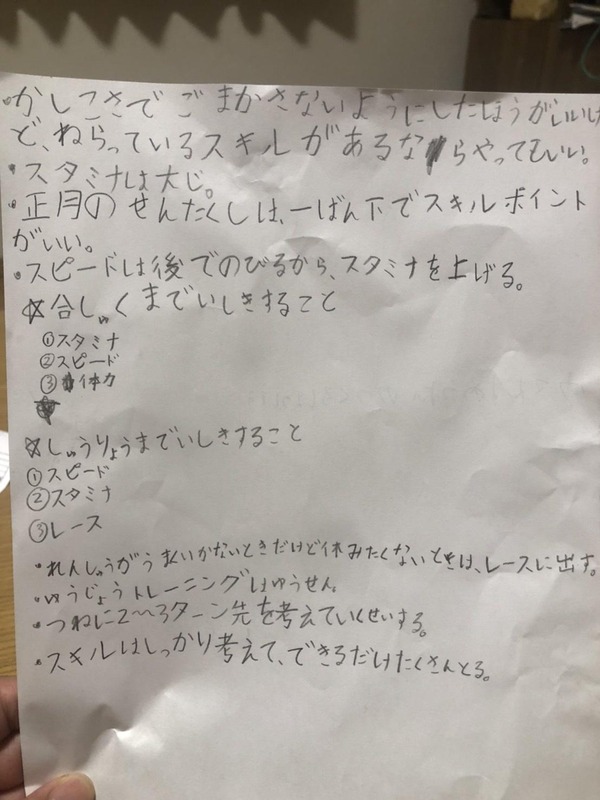 ・かしこさでごまかさないようにしたほうがいいけ
ど、ねらっているスキルがあるならやってもいい。
・スタミナは大じ。
・正月のせんたくしは、一ばん下でスキルポイント
がいい。
・スピードは後でのびるから、スタミナを上げる。
☆合しゅくまでいしきすること
①スタミナ
②スピード
③体力
☆しゅうりょうまでいしきすること
①スピード
②スタミナ
③レース
・れんしゅうがうまくいかないときだけど休みたくないときは、レースに出す。
・ゆうじょうトレーニングはゆうせん。
・つねに2〜3ターン先を考えていくせいする。
・スキルはしっかり考えて、できるだけたくさんとる。